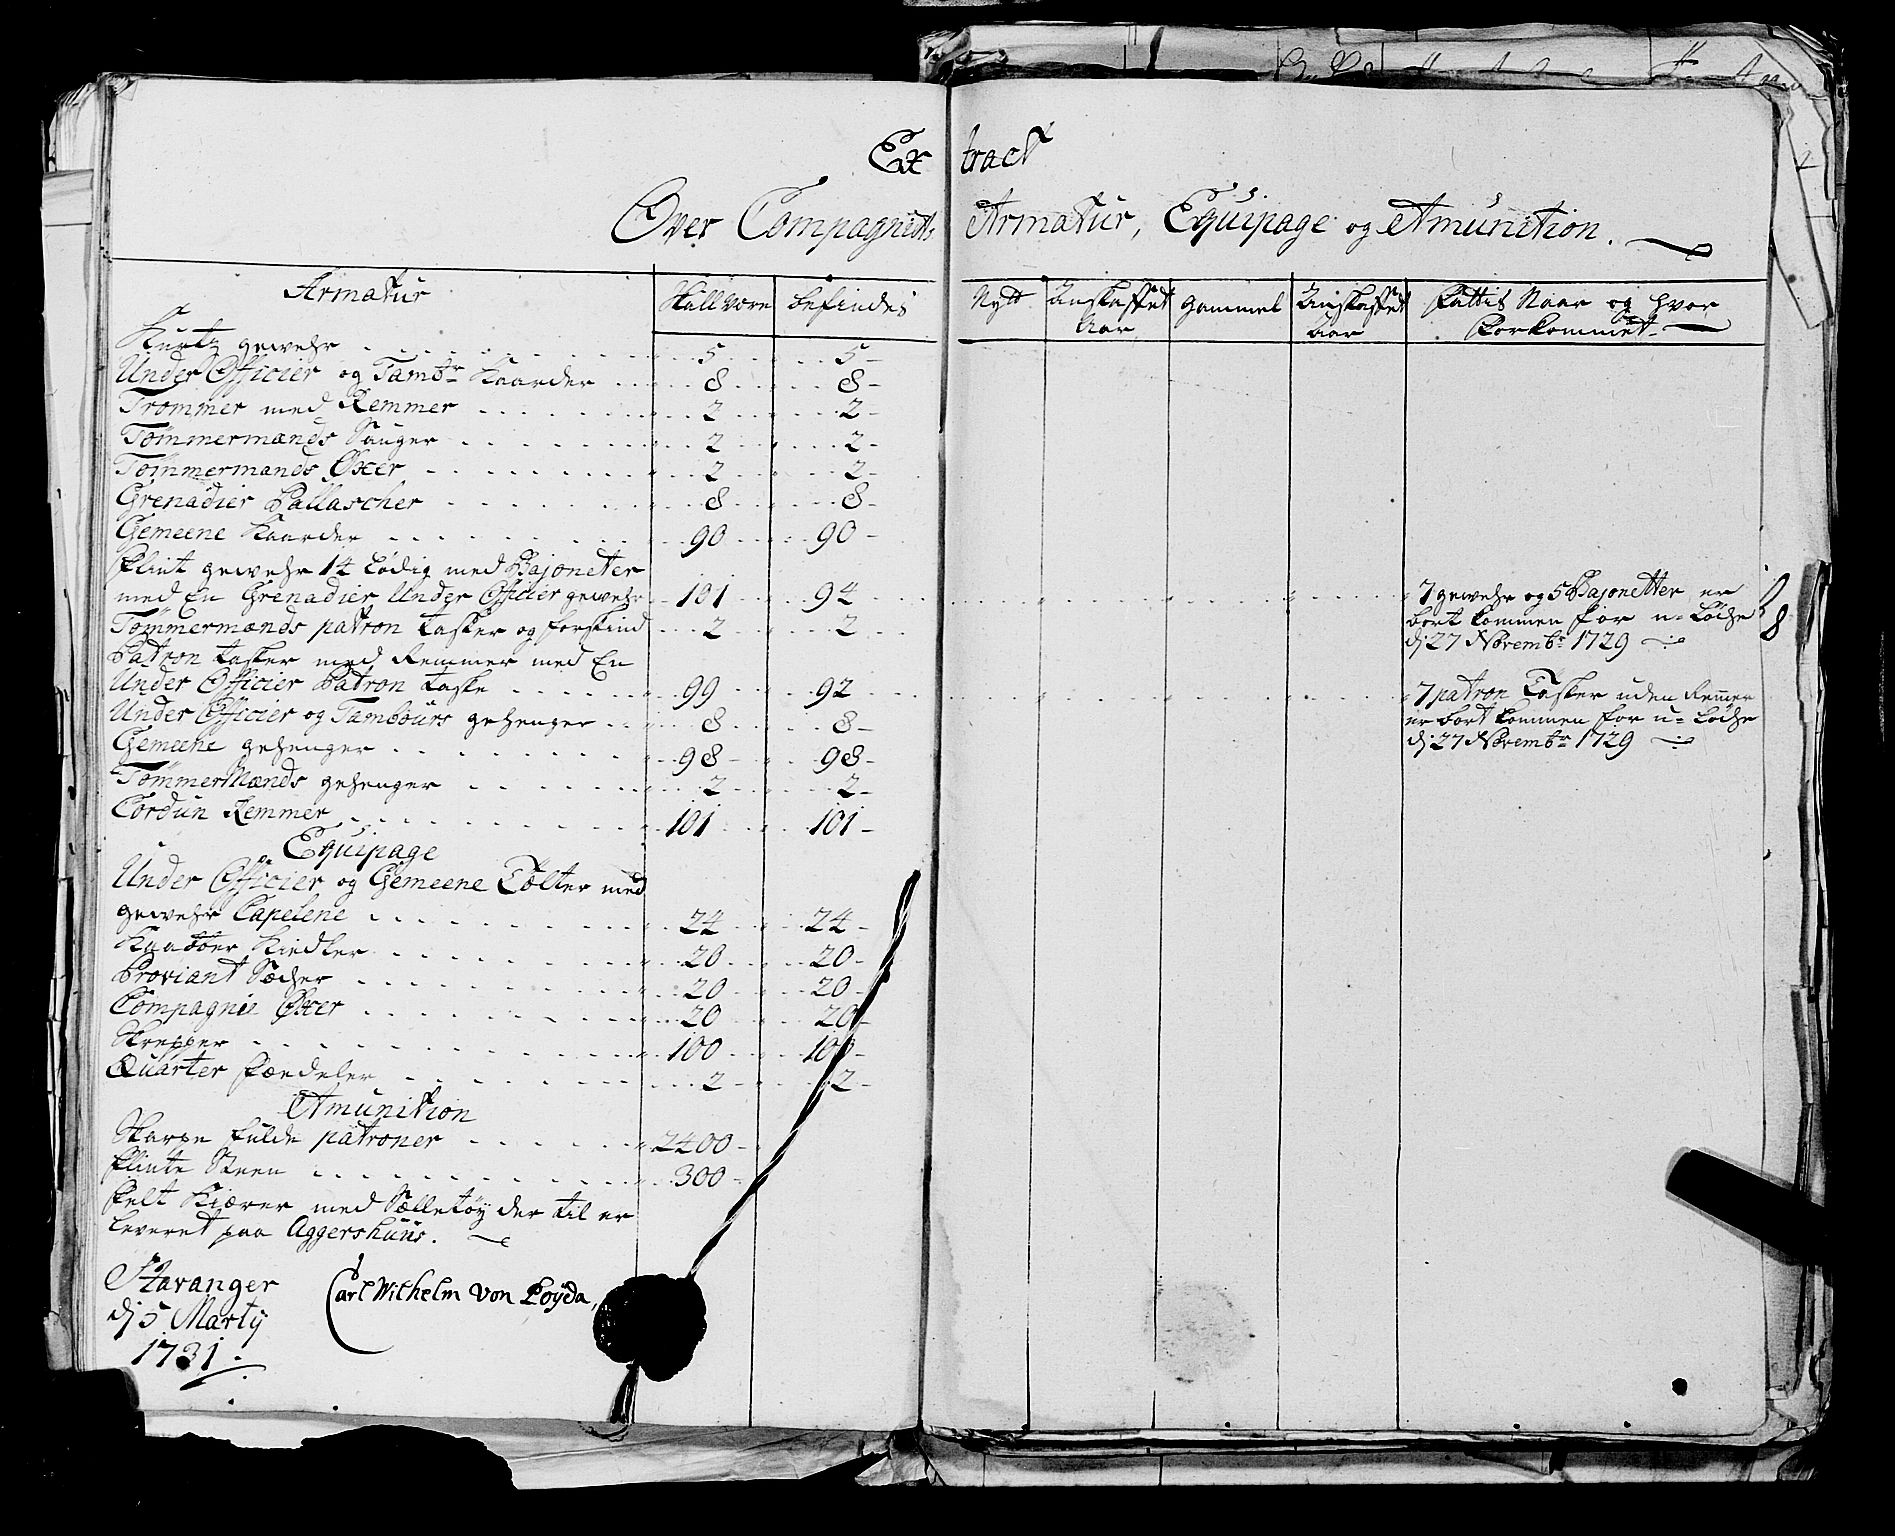 Extract
Over Compagniets Armatur, Equipage og Amunition.
Armatur
Skall være
befindes
Nytt
Anskaffet Aar
gammel
Anskaffet Aar
Fattis Naar og hvor
forkommet
Kurtz gewehr 5 5
Under Officier og Tambr Kaarder 8 8
Trommer med Remmer 2 2
Tømmermænds Sauger 2 2
Tømmermænds Øxer 2 2
Grenadier Pallascher 8 8
Gemeene Kaarder 90 90
Flint gewehr 14 Lödig med Bajoneter
med En Grenadier Under Officier gewehr 101 94
7 gewehr og 5 Bajonetter er
bort kommen for
dj 27 Novembr 1729
8
Tømmermænds patron tasker og forskind 2 2
Patron tasker med Remmer med En
Under Officier Patron taske 99 92
7 patron Tasker uden Remer
er bort kommen for
dj 27 Novembr 1729
Under Officier og Tambours gehenger 8 8
Gemeene gehenger 98 98
TømmerMænds gehenger 2 2
Cordun Remmer 101 101
Equipage
Under Officier og Gemeene Tælter med
gewehr Capelene 24 24
Kaaber Kiedler 20 20
Proviant Sæcher 20 20
Compagnie Øxer 20 20
Skrepper 100 100
Quarter 2 2
Amunition
Skarpe fulde patroner 2400
Flinte Steen 300
Felt Kiærer med Sælletøy der til er
leveret paa Aggershuus.
Stavanger
dj 5 Marty
1731.
Carl Wilhelm von Poyda,